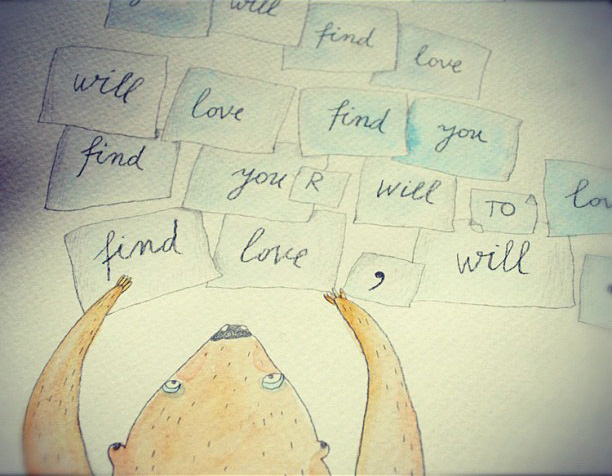 will
find love
will love find you
find you R will TO
find love , will